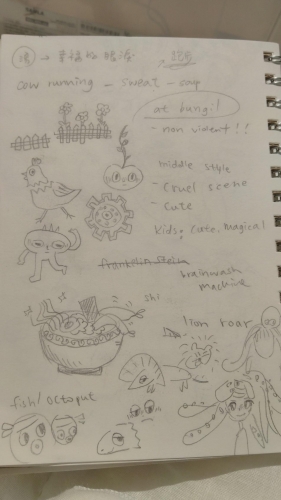 cow running - sweat - soup
at bungil
- non violent!!
middle style
- Cruel scene
- cute
kids: cute, magical
franklin stein
brainwash
machine
shi
lion roar
fish/octoput